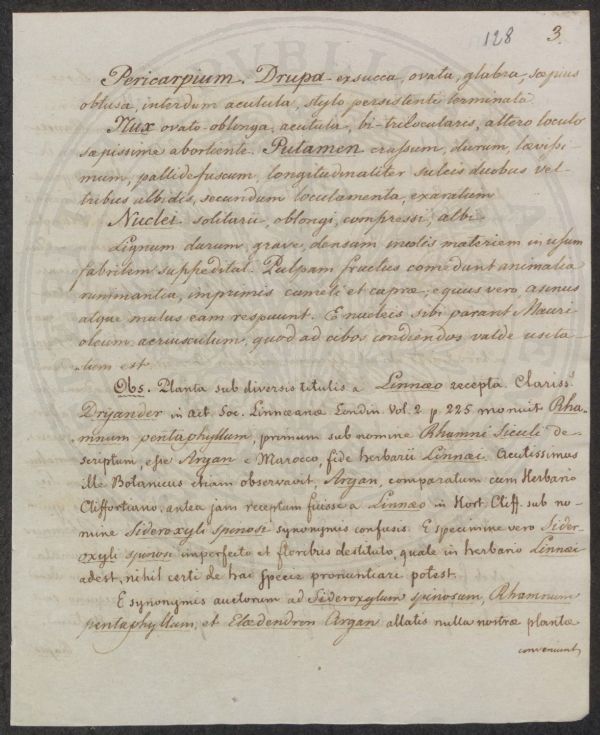 128 3.
Pericarpium. Drupa exsucca, ovata, glabra, sæpius
obtusa, interdum acutula, stylo persistente terminata
Nux ovato-oblonga, acutula, bi-trilocularis, altero loculo
sæpissime abortiente. Putamen crassum, durum, lævissi-
mum, pallide fuscum, longitudinaliter sulcis duobus vel-
tribus albidis, secundum loculamenta, exaratum
Nuclei solitarii, oblongi, compressi, albi
Lignum durum, grave, densam incolis materiem in usum
fabrilem suppeditat. Pulpam fructus comedunt animalia
ruminantia, imprimis cameli et capræ; equus vero, asinus
atque mulus eam respuunt. E nucleis sibi parant Mauri
oleum acriusculum, quod ad cibos condiendos valde usita-
tum est.
Obs. Planta sub diversis titulis a Linnæo recepta. Clariss.
Dryander in act. Soc. Linnæanæ Londin Vol. 2 p 225 monuit Rha-
mnum pentaphyllum, primum sub nomine Rhamni Siculi de-
scriptum, esse Argan e Marocco, fide herbarii Linnæi. Acutissimus
ille Botanicus etiam observavit, Argan, comparatum cum Herbario
Cliffortiano, antea jam receptum fuisse a Linnæo in Hort. Cliff. sub no-
mine Sideroxyli spinosi synonymis confusis. E specimine vero Sider-
oxyli spinosi imperfecto et floribus destituto, quale in herbario Linnæi
adest, nihil certi de hac specie pronuntiari potest.
E synonymis auctorum ad Sideroxylum spinosum, Rhamnum
pentaphyllum, et Elæodendron Argan allatis nulla nostræ plantæ
conveniunt